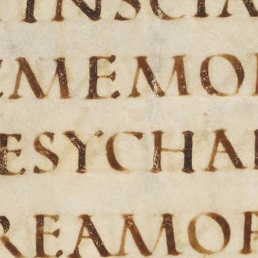 INSCIA
EMEMOR
ESYCHA
REAMOR